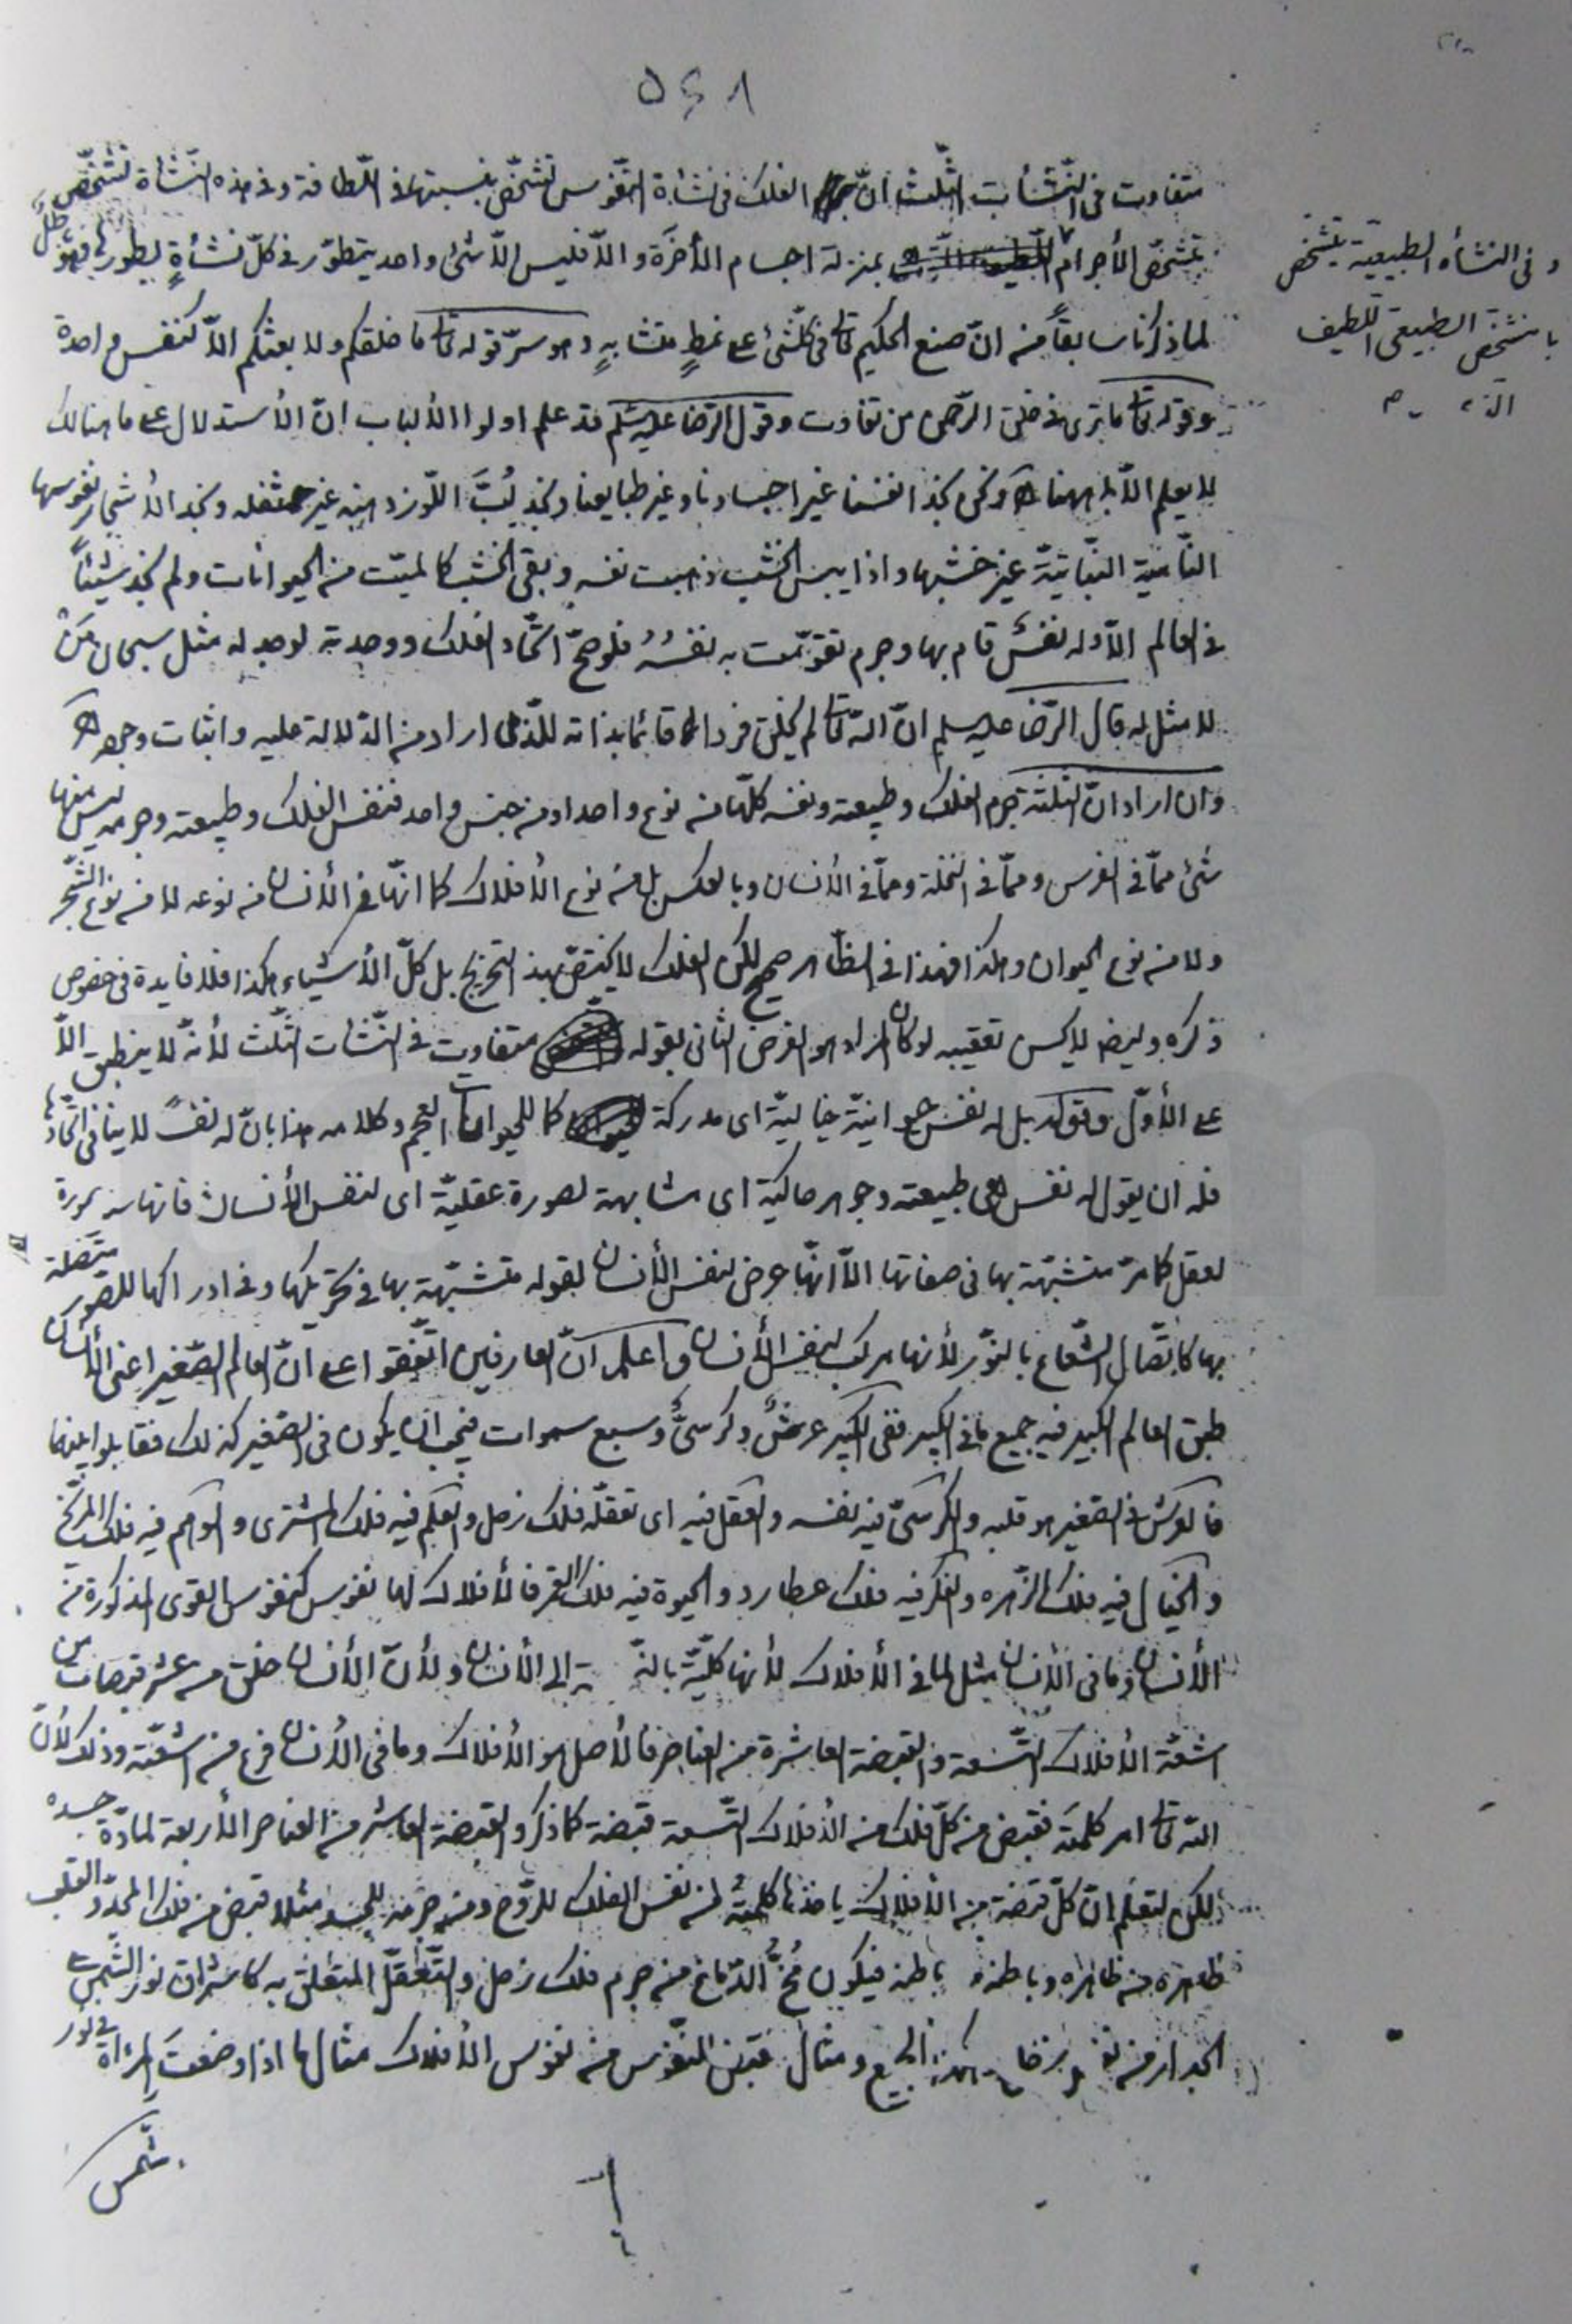 ٥٤٨
متفاوت فى النّشأت الثّلث انّ الفلك فى نشأة النّفوس تشخّص بنسبتها فى اللّطافة وفى هذه النّشأة تشخّص
تشخّص الأجرام بمنزلة اجسام الأخرة والّا فليس الّا شئ واحد يتطوّر فى كلّ نشأةٍ بطورها فهو باطل
لما ذكرنا سابقاً من انّ صنع الحكيم تعالى فى كلّ شئ على نمطٍ متشابهٍ وهو سرّ قوله تعالى ما خلقكم ولا بعثكم الّا كنفس واحدة
وقوله تعالى ما ترى فى خلق الرّحمن من تفاوت وقول الرّضا عليه السّلم قد علم اولوا الألباب انّ الأستدلال على ما هنالك
لا يعلم الّا بما ههنا ونحن نجد انفسنا غير اجسادنا وغير طبايعنا ونجد لُبَّ اللّوز ودهنه غير ثفله ونجد الأشجار نفوسها
النّامية النّباتيّة غير خشبها واذا يبس الخشب ذهبت نفسه وبقى الخشب كالميّت من الحيوانات ولم نجد شيئاً
فى العالم الّا وله نفسٌ قام بها وجرم تقوّمت به نفسُهُ فلو صحّ اتّحاد الفلك ووحدته لوجد له مثل سبحان مَنْ
لا مثل له قال الرّضا عليه السلم انّ اللّه تعالى لم يخلق فرداً قائما بذاته للّذى اراد من الدّلالة عليه واثبات وجوده
وان اراد انّ الثلثة جرم الفلك وطبيعته ونفسه كلّها من نوع واحد او من جنس واحد فنفس الفلك وطبيعته وجرمه ليس منها
شئ ممّا فى الفرس وممّا فى النخلة وممّا فى الأنسان وبالعكس بل من نوع الأفلاك كما انّها فى الأنسان من نوعه لا من نوع الشّجر
ولا من نوع الحيوان وهكذا فهذا فى الظّاهر صحيح لكن الفلك لا يختصّ بهذا التخريج بل كلّ الأشياء هكذا فلا فايدة فى خصوص
ذكره وايضا لا يحسن تعقيبه لو كان المراد هو الفرض الثانى بقوله متفاوت فى النّشأت الثّلث لأنّه لا ينطبق الّا
على الأوّل وقوله بل له نفس حيوانيّة خياليّة اى مدركة كما للحيوانات العجم وكلامه هذا بانّ له نفساً لا ينافى اتّحادها
فله ان يقول له نفس هى طبيعته وجوهر حاكية اى مشابهة لصورة عقليّة اى لنفس الأنسان فانها صورة
لعقل كما مرّ متشبّهة بها فى صفاتها الّا انّها عرض لنفس الأنسان لقوله متشبّهة بها فى تحريكها وفى ادراكها للصّور متّصلة
بها كاتّصال الشّعاع بالنّور لأنها مركب لنفس الأنسان واعلم انّ العارفين اتّفقوا على انّ العالم الصّغير اعنى الأنسان
طبق العالم الكبير فيه جميع ما فى الكبير ففى الكبير عرشٌ وكرسىٌّ وسبع سموات فيجب ان يكون فى الصّغير كذلك فقابلوا بينهما
فالعرش فى الصّغير هو قلبه والكرسىّ فيه نفسه والعقل فيه اى تعقلّه فلك زحل والعلم فيه فلك المشترى والوهم فيه فلك المرّيخ
والخيال فيه فلك الزّهره والفكر فيه فلك عطارد والحيوة فيه فلك القمر فالأفلاك لها نفوس كنفوس القوى المذكورة من
الأنسان وما فى الأنسان مثل لما فى الأفلاك لأنها كلّيّة بالنّـ ـة الى الأنسان ولأنّ الأنسان خلق من عشر قبضات من
اشعّة الأفلاك التّسعة والقبضة العاشرة من العناصر فالأصل هو الأفلاك وما فى الأنسان فرع من اشعّته وذلك لأنّ
اللّه تعالى امر كلمته فقبض من كلّ فلك من الأفلاك التّسعة قبضة كما ذكر والقبضة العاشرة من العناصر الأربعة لمادّة جسده
لكن لتعلم انّ كلّ قبضة من الأفلاك ياخذها كلمته من نفس الفلك للرّوح ومن جرمه للجسد مثلا قبض من فلك المحدّد القلب
ظاهره من ظاهره وباطنه باطنه فيكون مُخّ الدّماغ من جرم فلك زحل والتّعقّل المتعلق به كاشراق نور الشّمس على
الجدار من نفسه وهكذا الجميع ومثال قبض النّفوس من نفوس الأفلاك مثال ما اذا وضعت المرءاة فى نور
شّمس
وفى النشأه الطبيعية يتشخص
بالتشخص الطبيعى اللطيف